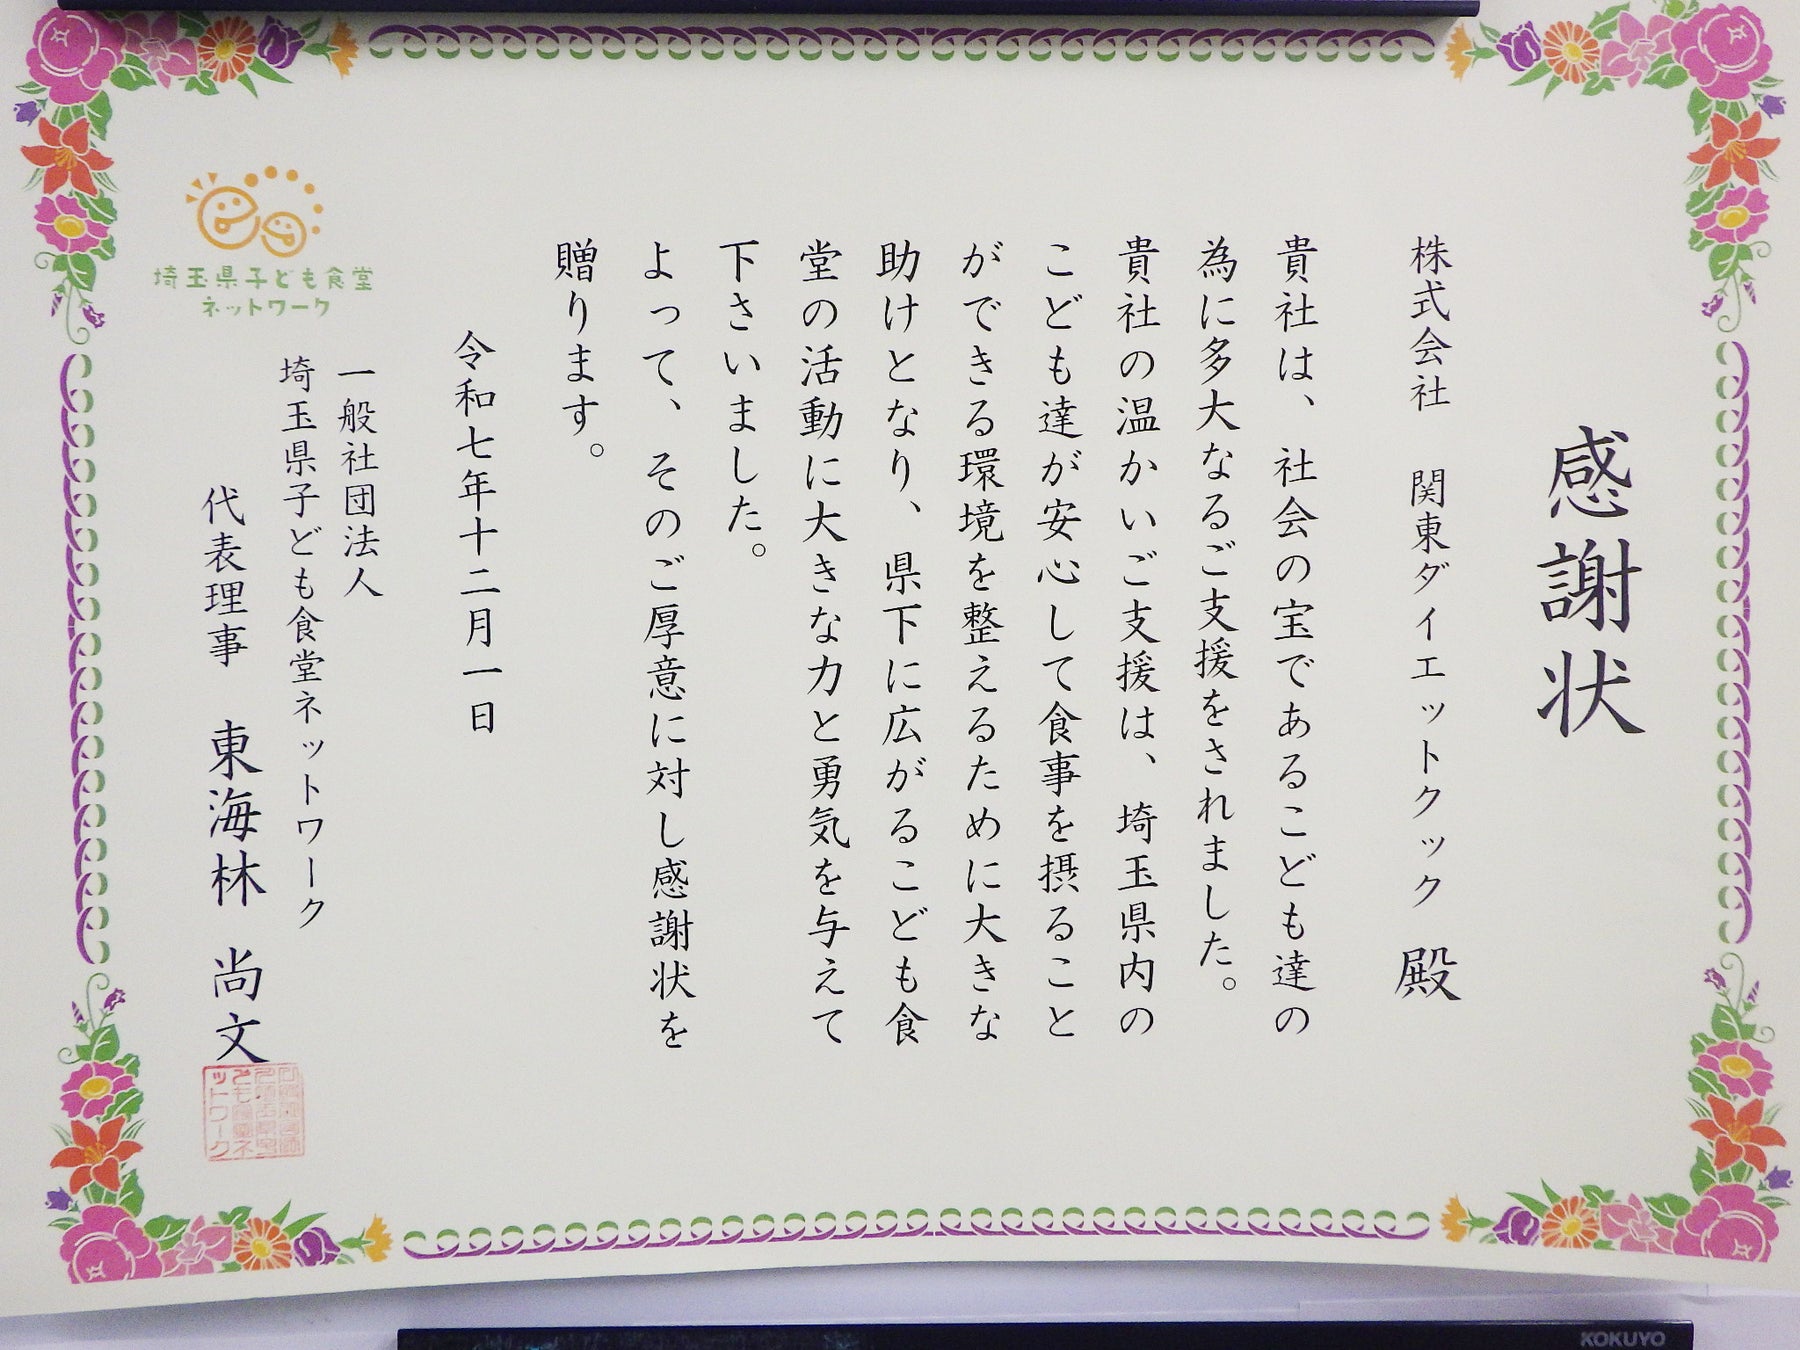 感謝状
株式会社 関東ダイエットクック 殿
貴社は、社会の宝であるこども達の
為に多大なるご支援をされました。
貴社の温かいご支援は、埼玉県内の
こども達が安心して食事を摂ること
ができる環境を整えるために大きな
助けとなり、県下に広がるこども食
堂の活動に大きな力と勇気を与えて
下さいました。
よって、そのご厚意に対し感謝状を
贈ります。
令和七年十二月一日
一般社団法人
埼玉県子ども食堂ネットワーク
代表理事 東海林 尚文
埼玉県子ども食堂
ネットワーク
ットワーク
KOKUYO